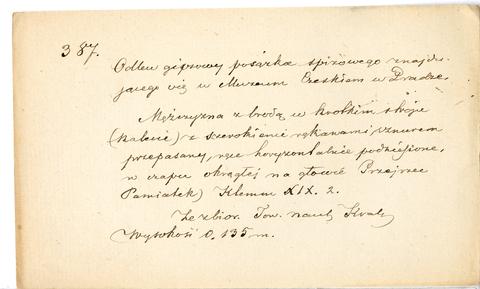 387.
Odlew gipsowy posążka spiżowego znajdu-
jącego się w Muzeum Czeskiem w Pradze.
Mężczyzna z brodą w krótkim stroju
z szerokiemi rękawami sznurem
przepasany, ręce horyzontalnie podniesione,
w czapce okrągłej na głowie
Pamiatek) Klemm XIX. 2.
Ze zbior. Tow. nauk. Krak.
Wysokość 0,135 m.